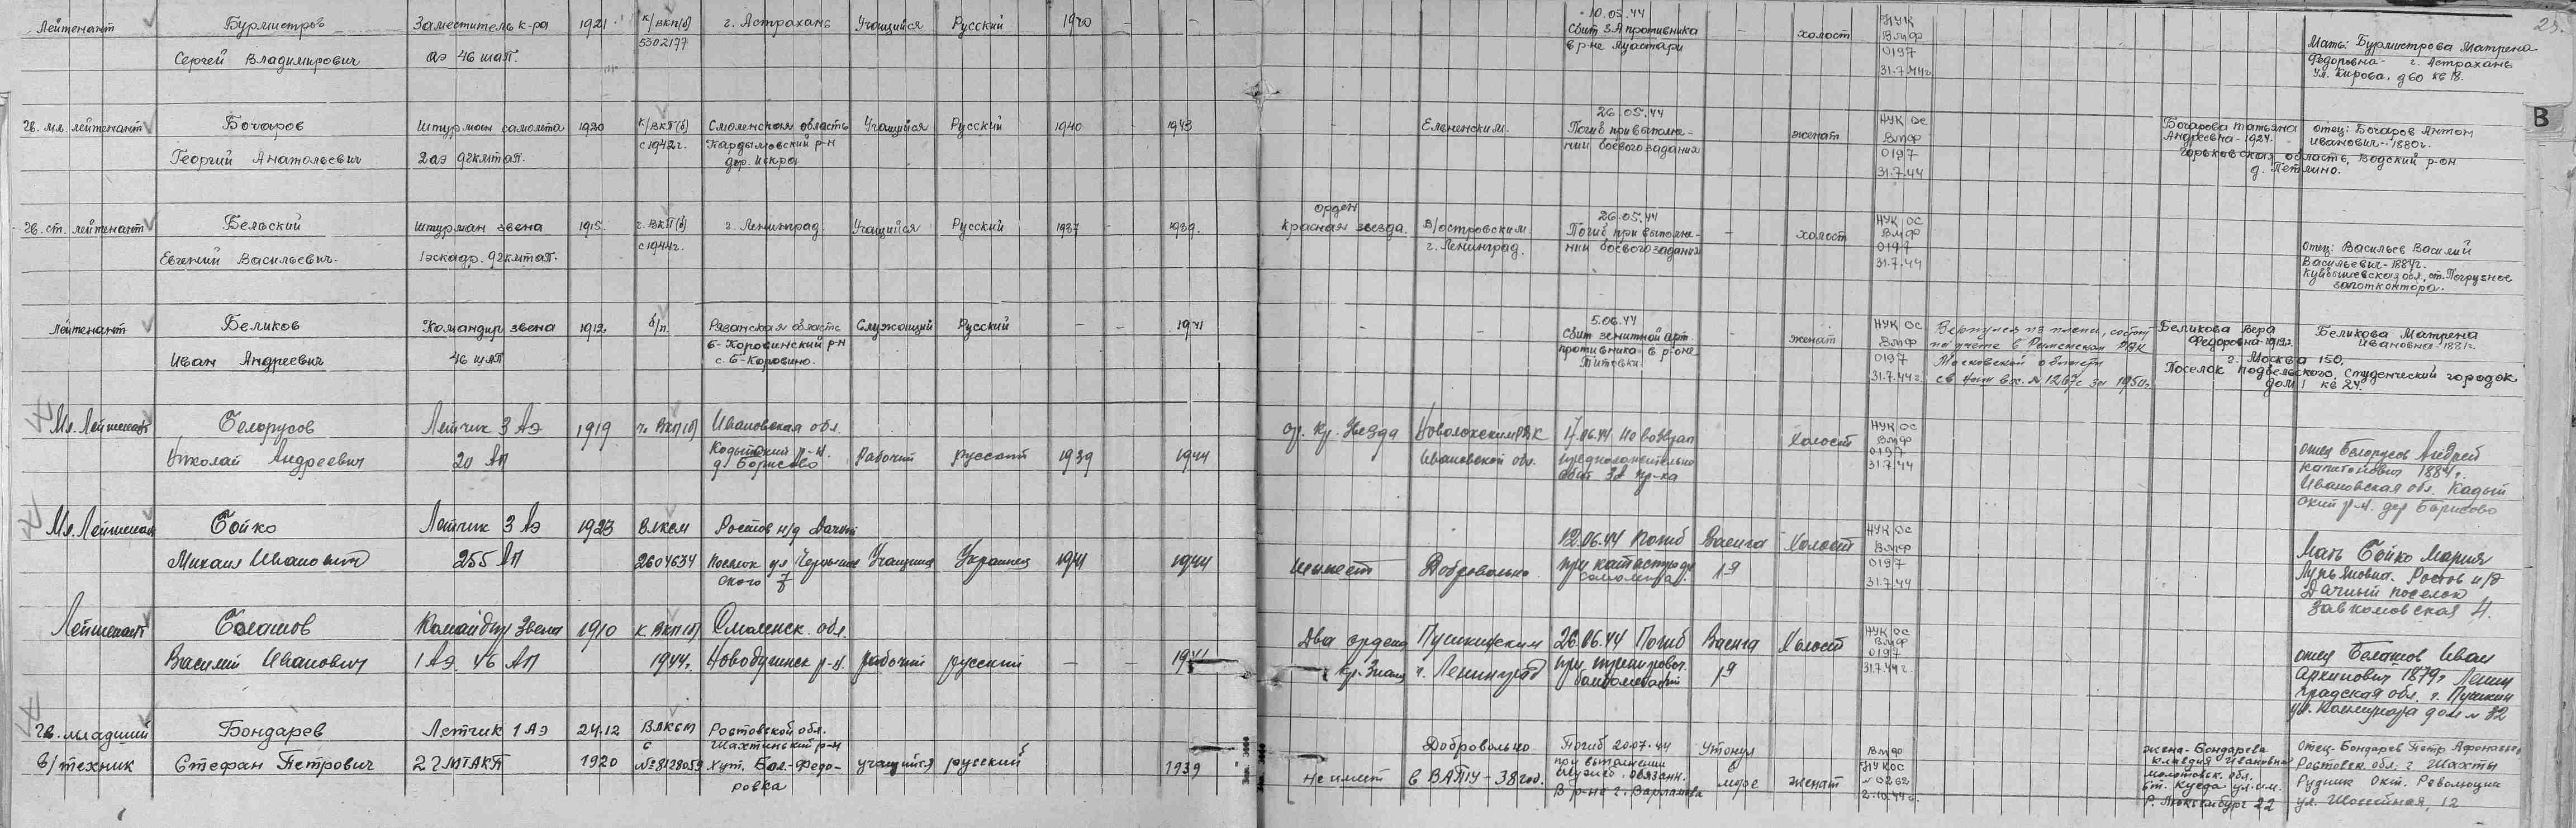 23.
В
Лейтенант Бурмистров Заместитель к-ра 1921 к/ВКП(б) г. Астрахань Учащийся Русский 1940 — — 10.05.44 — холост НУК
5302177 Сбит ЗА противника ВМФ
Сергей Владимирович аэ 46 шап. в р-не Луостари 0197 Мать: Бурмистрова Матрена
31.7.44г Федоровна - г. Астрахань
ул. Кирова, д 60 кв 18.
Гв. мл. лейтенант Бочаров Штурман самолета 1920 к/ВКП(б) Смоленская область Учащийся Русский 1940 — 1943 — Ельненским. 26.05.44 — женат НУК ОС Бочарова Татьяна отец: Бочаров Антон
с 1942г. Кардымовский р-н Погиб при выполне- ВМФ Андреевна - 1924. Иванович - 1880г.
Георгий Анатольевич 2 аэ 9гкмтап. дер. Искра нии боевого задания 0197 Горьковская область, Вадский р-он
31.7.44 д. Петлино.
Гв. ст. лейтенант Бельский Штурман звена 1915. г. ВКП(б) г. Ленинград. Учащийся Русский 1937 — 1939. орден 26.05.44
с 1944г. Красная звезда. В/островским. Погиб при выполне- — холост НУК ОС
Евгений Васильевич. 1 эскадр. 9гкмтап. г. Ленинград. нии боевого задания ВМФ
0197 отец: Васильев Василий
31.7.44 Васильевич - 1884г.
Куйбышевская обл., ст. Погрузное
заготконтора.
Лейтенант Беликов Командир звена 1912. б/п. Рязанская область Служащий Русский — — 1941 — — 5.06.44 — женат НУК ОС Вернулся из плена, состоит Беликова Вера Беликова Матрена
Б-Коровинский р-н Сбит зенитной арт. ВМФ на учете в Раменском РВК Федоровна - 1912г. Ивановна - 1881г.
Иван Андреевич 46 шап с. Б-Коровино. противника в р-оне 0197 Московской области г. Москва 150,
Титовки. 31.7.44г вх. № за 1950г. Поселок Подбельского, Студенческий городок
дом 1 кв 24.
Мл. Лейтенант Белорусов Летчик 3 Аэ 1919 ч. ВКП(б) Ивановская обл. ор. Кр. Звезда РВК 17.06.44 Не возврат Холост НУК ОС
Николай Андреевич 20 АП Кадыйский р-н. Рабочий Русский 1939 1944 Ивановской обл. предположительно ВМФ 0197 отец Белорусов Андрей
д. Борисово сбит ЗА пр-ка 31.7.44 Капитонович 1884г.
Ивановская обл. Кадый
ский р-н. дер Борисово
Мл. Лейтенант Бойко Летчик 3 Аэ 1923 ВЛКСМ Ростов н/д Дачный 12.06.44 Погиб Ваенга Холост НУК ОС
ВМФ
Михаил Иванович 255 АП 2604634 поселок Учащийся Украинец 1941 1944 не имеет Добровольно при катастрофе 19 0197 Мать Бойко Мария
ского 7 самолета. 31.7.44 Ростов н/д
Дачный поселок
Завкомовская 4.
Лейтенант Белашов Командир Звена 1910 к. ВКП(б) Смоленск. обл. Два ордена Пушкинским 26.06.44 Погиб Ваенга Холост НУК ОС ВМФ
Василий Иванович 1 Аэ. 46 АП 1944г. р-н. рабочий русский — — 1941 Кр. Знам г. Ленинград при тренировоч. 19 0197 отец Белашов Иван
бомбометании 31.7.44г. 1879г Ленин
градская обл. г. Пушкин
ул. Коммунара дом № 82
Гв. младший Бондарев Летчик 1 Аэ 24.12 ВЛКСМ Ростовской обл. Добровольно Погиб 20.07.44 Утонул
Шахтинский р-н при выполнении в ВМФ жена - Бондарева отец - Бондарев Петр Афонасьев
в/техник Стефан Петрович 2 ГМТАКП 1920 № 8128059 Хут. Бол.-Федо- учащийся русский 1939 не имеет в ВАПУ - 38 год. служеб. обязан. море женат НУКОС Клавдия Ивановна Ростовск. обл. г. Шахты
ровка В р-не г. №0262 Молотовск. обл. Рудник Окт. Революции
2.10.44г. ст. Куеда ул. им. ул. Шоссейная, 12
Р. Люксембург 22